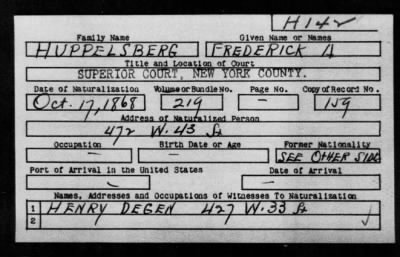 H142
Family Name Given Name or Names
HUPPELSBERG FREDERICK A
Title and Location of Court
SUPERIOR COURT, NEW YORK COUNTY.
Date of Naturalization Volume or Bundle No. Page No. Copy of Record No.
Oct. 17, 1868 219 — 159
Address of Naturalized Person
472 W. 43 St
Occupation Birth Date or Age Former Nationality
— — SEE OTHER SIDE
Port of Arrival in the United States Date of Arrival
— —
Names, Addresses and Occupations of Witnesses To Naturalization
1 HENRY DEGEN 427 W. 33 St
2